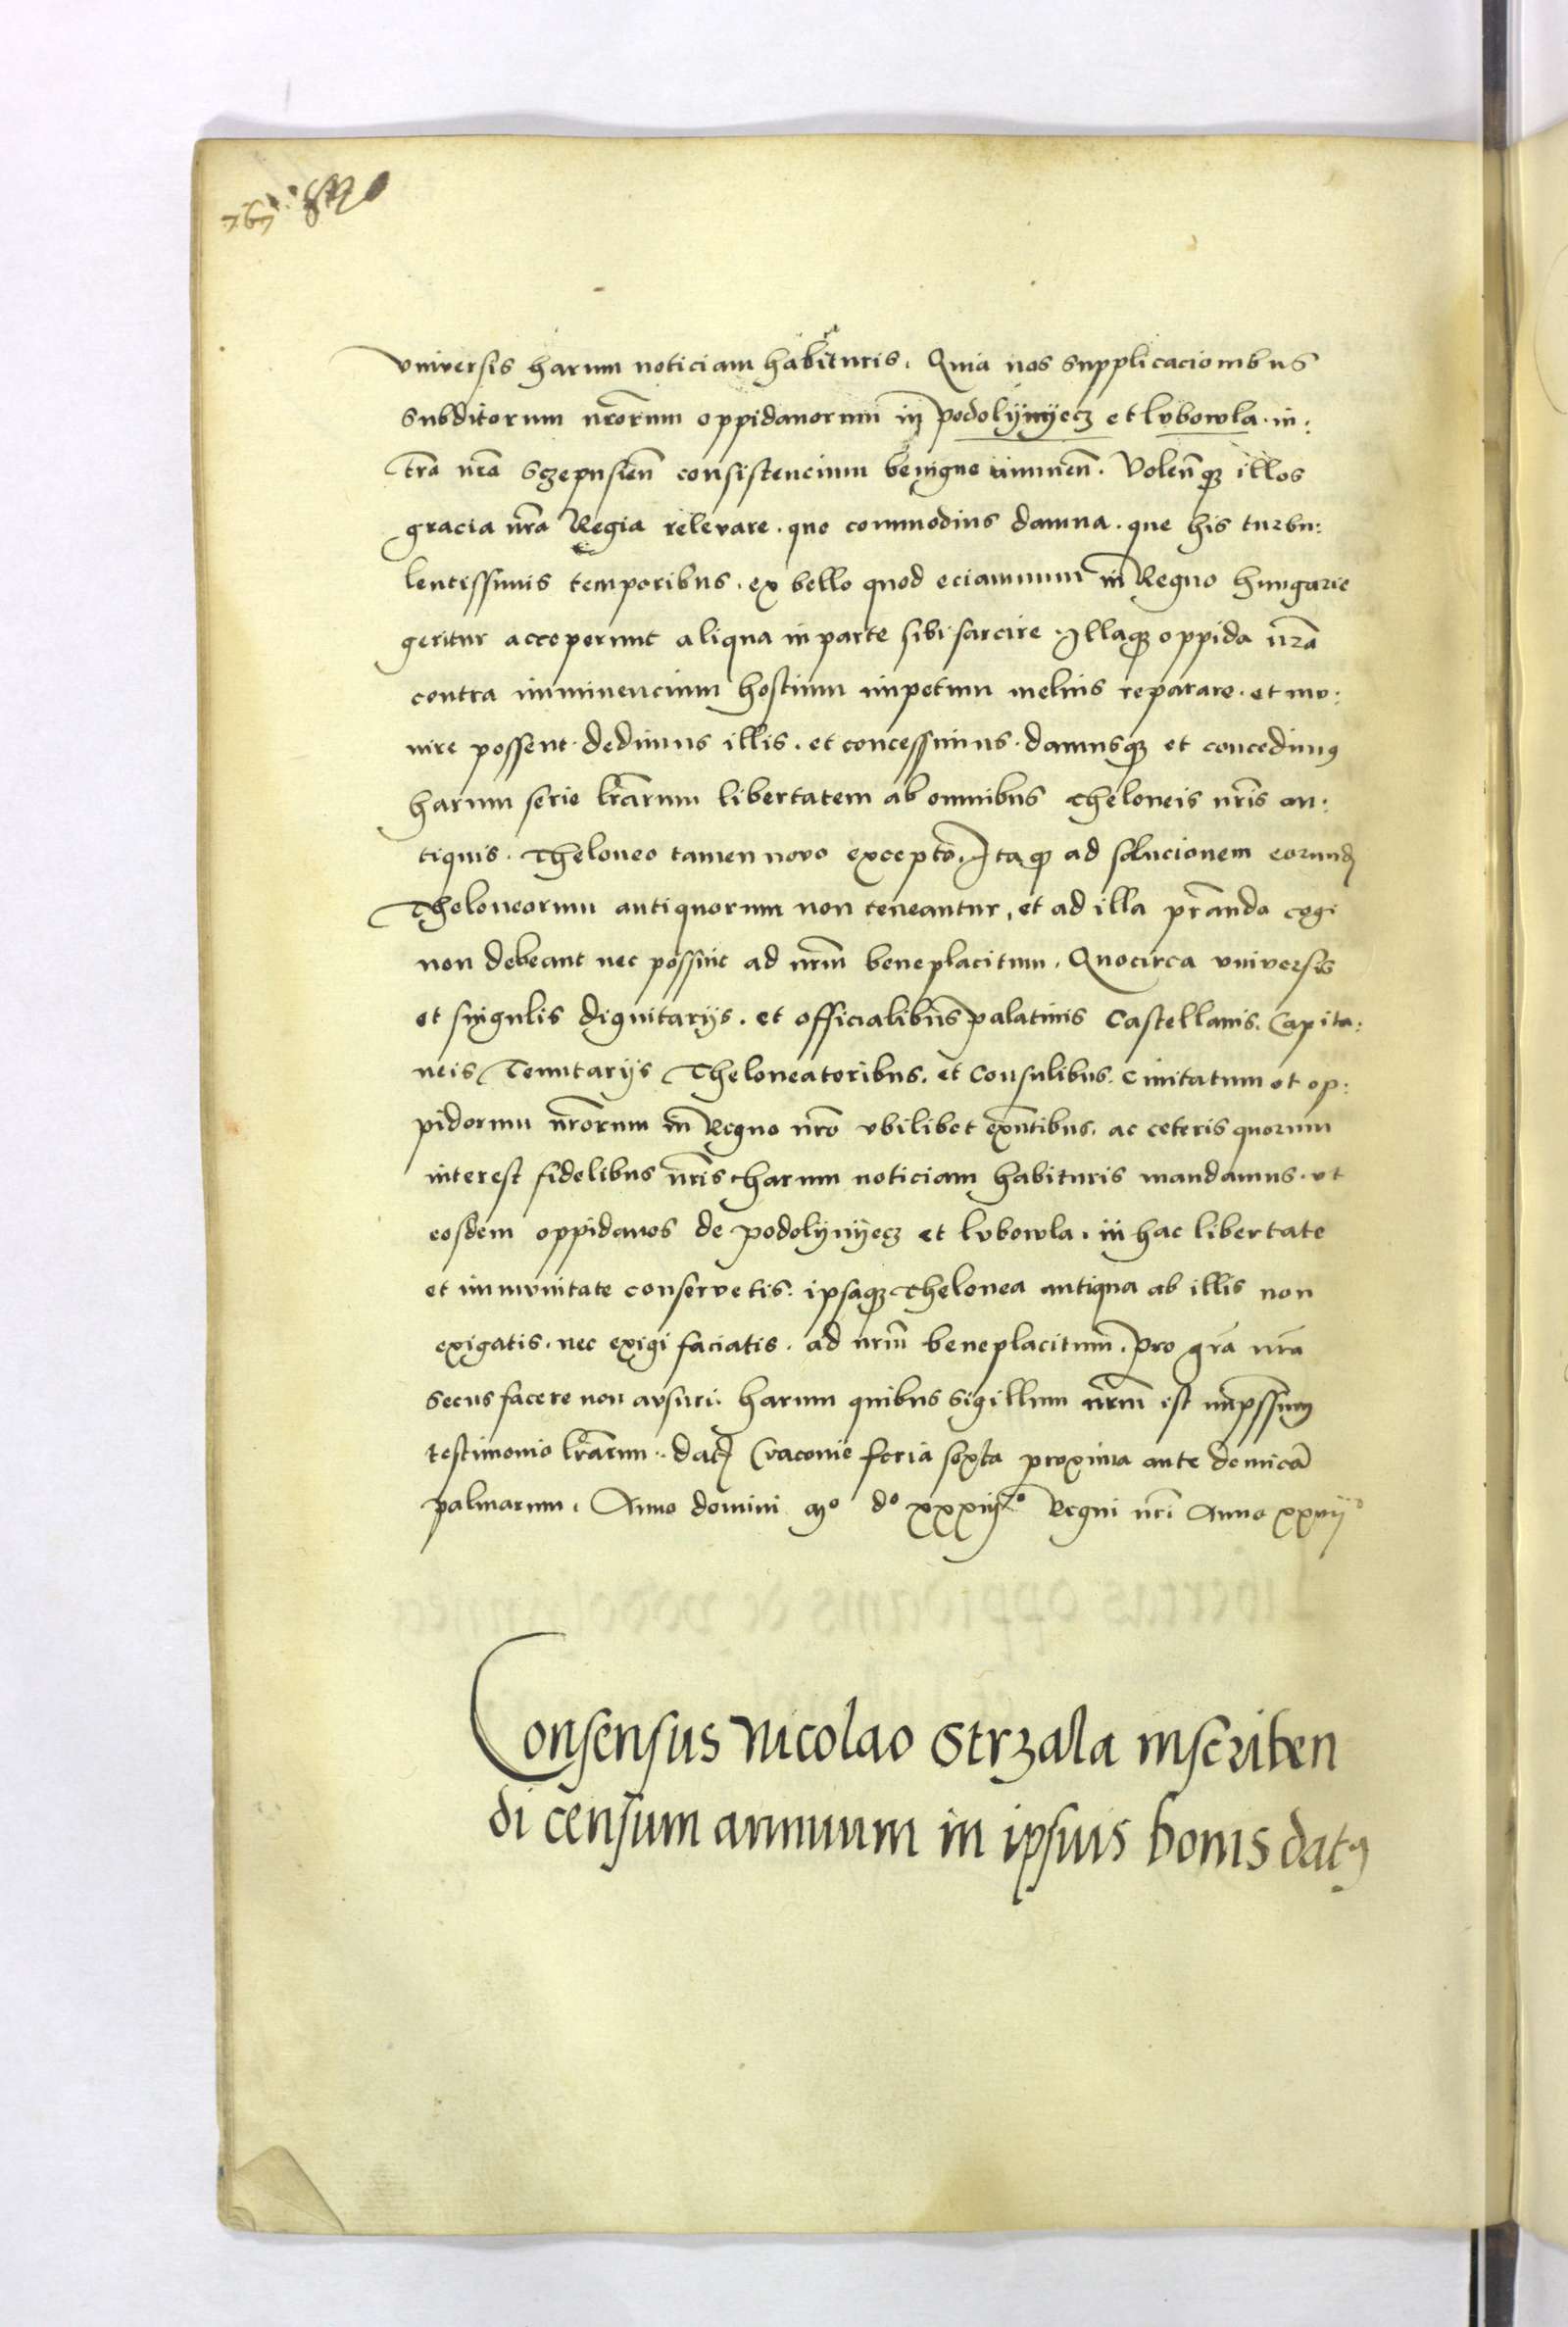 vniversis harum noticiam habituris. Quia nos supplicacionibus
subditorum nrorum oppidanorum in podolÿnÿecz et lvbowla. in:
tra nra Sczepusien consistencium benigne annuen. Volenqz illos
gracia nra Regia relevare. quo commodius damna. que his turbu:
lentissimis temporibus. ex bello quod eciamnum in Regno hungarie
geritur acceperunt aliqua in parte sibi sarcire. Illaqz oppida nra
contra imminencium hostium impetum melius reparare. et mu:
nire possent. dedimus illis. et concessimus. damusqz et concedimus
harum serie lrarum libertatem ab omnibus theloneis nris an:
tiquis. Theloneo tamen novo excepto. Itaqz ad solucionem eorund
Theloneorum antiquorum non teneantur, et ad illa pranda cogi
non debeant nec possint ad nrm beneplacitum. Quocirca vniversis
et singulis dignitarijs. et officialibus palatinis Castellanis. Capita:
neis Tenutarijs Theloneatoribus. et Consulibus. Civitatum et op:
pidorum nrorum in Regno nro vbilibet exntibus. ac ceteris quorum
interest fidelibus nris harum noticiam habituris mandamus. vt
eosdem oppidanos de podolÿnÿecz et lvbowla. in hac libertate
et immvnitate conservetis. ipsaqz thelonea antiqua ab illis non
exigatis. nec exigi faciatis. ad nrm beneplacitum. pro gra nra
secus facere non avsuri. harum quibus sigillum nrm est impssum
testimonio lrarum. dat Cracovie feria sexta proxima ante domicam
palmarum. Anno domini Mo do xxxiijo Regni nri Anno xxvij
Consensus Nicolao Strzala inscriben
di censum annuum in ipsius bonis dat9